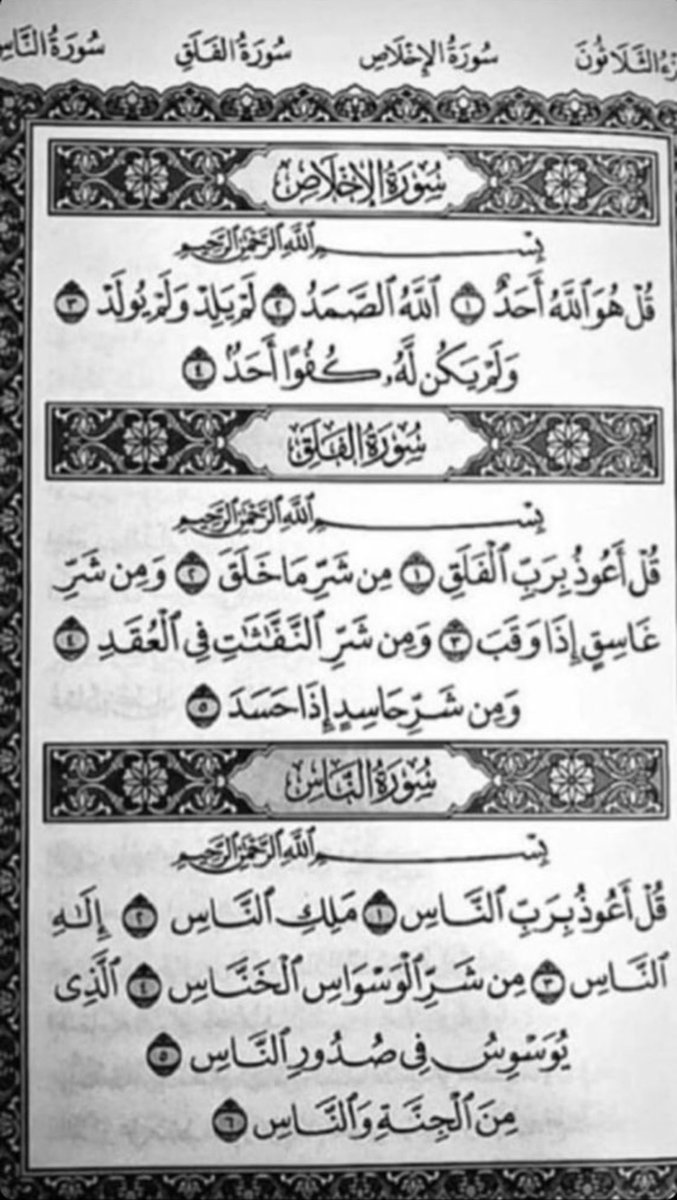 الثَّلَاثُونَ سُورَةُ الإِخْلَاصِ سُورَةُ الفَلَقِ سُورَةُ النَّاسِ
سُورَةُ الإِخْلَاصِ
بِسْمِ اللَّهِ الرَّحْمَٰنِ الرَّحِيمِ
قُلْ هُوَ ٱللَّهُ أَحَدٌ ١ ٱللَّهُ ٱلصَّمَدُ ٢ لَمْ يَلِدْ وَلَمْ يُولَدْ ٣
وَلَمْ يَكُن لَّهُۥ كُفُوًا أَحَدٌۢ ٤
سُورَةُ الفَلَقِ
بِسْمِ اللَّهِ الرَّحْمَٰنِ الرَّحِيمِ
قُلْ أَعُوذُ بِرَبِّ ٱلْفَلَقِ ١ مِن شَرِّ مَا خَلَقَ ٢ وَمِن شَرِّ
غَاسِقٍ إِذَا وَقَبَ ٣ وَمِن شَرِّ ٱلنَّفَّٰثَٰتِ فِى ٱلْعُقَدِ ٤
وَمِن شَرِّ حَاسِدٍ إِذَا حَسَدَ ٥
سُورَةُ النَّاسِ
بِسْمِ اللَّهِ الرَّحْمَٰنِ الرَّحِيمِ
قُلْ أَعُوذُ بِرَبِّ ٱلنَّاسِ ١ مَلِكِ ٱلنَّاسِ ٢ إِلَٰهِ
ٱلنَّاسِ ٣ مِن شَرِّ ٱلْوَسْوَاسِ ٱلْخَنَّاسِ ٤ ٱلَّذِى
يُوَسْوِسُ فِى صُدُورِ ٱلنَّاسِ ٥
مِنَ ٱلْجِنَّةِ وَٱلنَّاسِ ٦